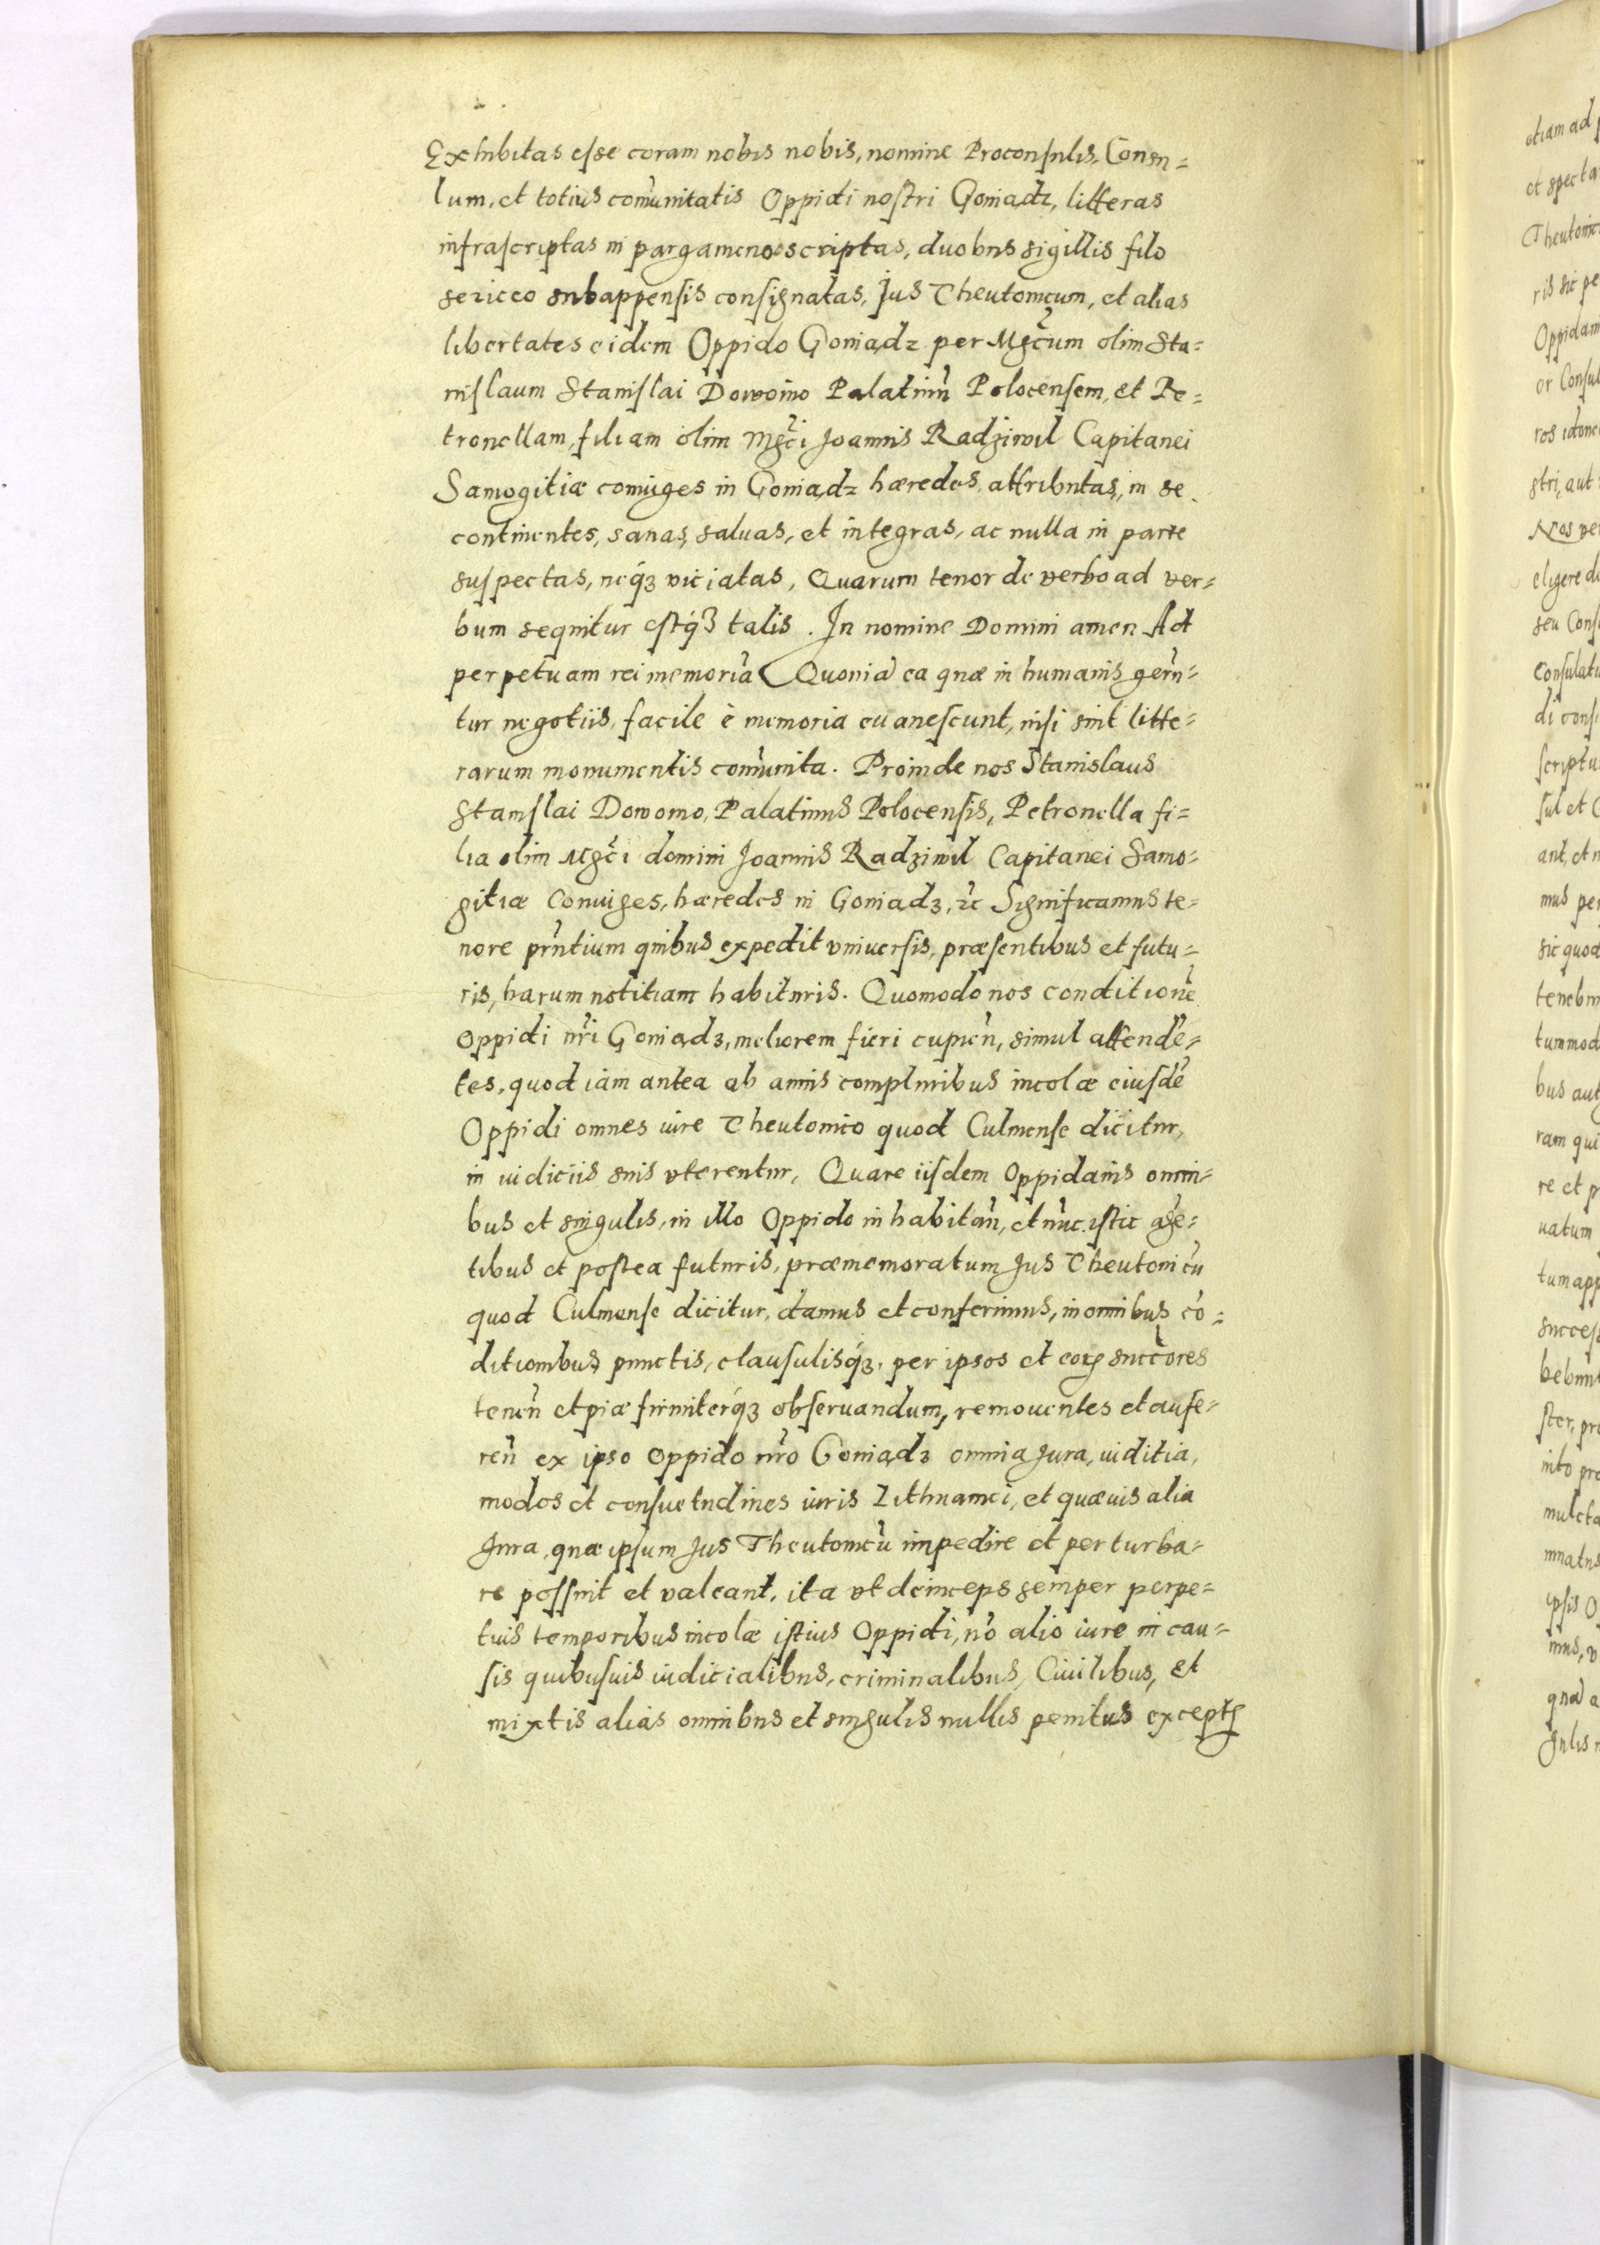 Exhibitas esse coram nobis nobis, nomine Proconsulis, Consu=
lum, et totius com̃unitatis Oppidi nostri Goniądz, litteras
infrascriptas in pargameno scriptas, duobus sigillis filo
sericeo subappensis consignatas, Jus Theutonicum, et alias
libertates eidem Oppido Goniądz per Mgc̃um olim Sta=
nislaum Stanislai Dowoino Palatinũ Polocensem, et Pe=
tronellam, filiam olim Mgc̃i Joannis Radziwil Capitanei
Samogitiæ coniuges in Goniądz hæredes, attributas, in se
continentes, sanas, saluas, et integras, ac nulla in parte
suspectas, neq́ꝫ viciatas, Quarum tenor de verbo ad ver=
bum sequitur estq́ꝫ talis. In nomine Domini amen Ad
perpetuam rei memoriã Quoniã ea quæ in humanis gerũ=
tur negotiis, facile è memoria euanescunt, nisi sint litte=
rarum monumentis com̃unita. Proinde nos Stanislaus
Stanislai Dowoino, Palatinus Polocensis, Petronella fi=
lia olim Mgc̃i domini Joannis Radziwil Capitanei Samo=
gitiæ Coniuges, hæredes in Goniądz, ꝛc Significamus te=
nore pr̃ntium quibus expedit vniuersis, præsentibus et futu=
ris, harum notitiam habituris. Quomodo nos conditionẽ
Oppidi nr̃i Goniądz, meliorem fieri cupien̄, simul attendẽ=
tes, quod iam antea ab annis compluribus incolæ eiusdẽ
Oppidi omnes iure Theutonico quod Culmense dicitur,
in iudiciis suis vterentur, Quare iisdem Oppidanis omni=
bus et singulis, in illo Oppido inhabitan̄, et nũc istic agẽ=
tibus et postea futuris, præmemoratum Jus Theutonicũ
quod Culmense dicitur, damus et conferimus, in omnibus cõ=
ditionibus punctis, clausulisq́ꝫ, per ipsos et eorꝝ succ̃ores
tenen̄ et piæ firmiterq́ꝫ obseruandum, remouentes et aufe=
ren̄ ex ipso Oppido nr̃o Goniądz omnia Jura, iuditia,
modos et consuetudines iuris Lithuanici, et quæuis alia
Jura, quæ ipsum Jus Theutonicũ impedire et perturba=
re possint et valeant, ita vt deinceps semper perpe=
tuis temporibus incolæ istius Oppidi, nõ alio iure in cau=
sis quibusuis iudicialibus, criminalibus, Ciuilibus, et
mixtis alias omnibus et singulis nullis penitus exceptꝭ